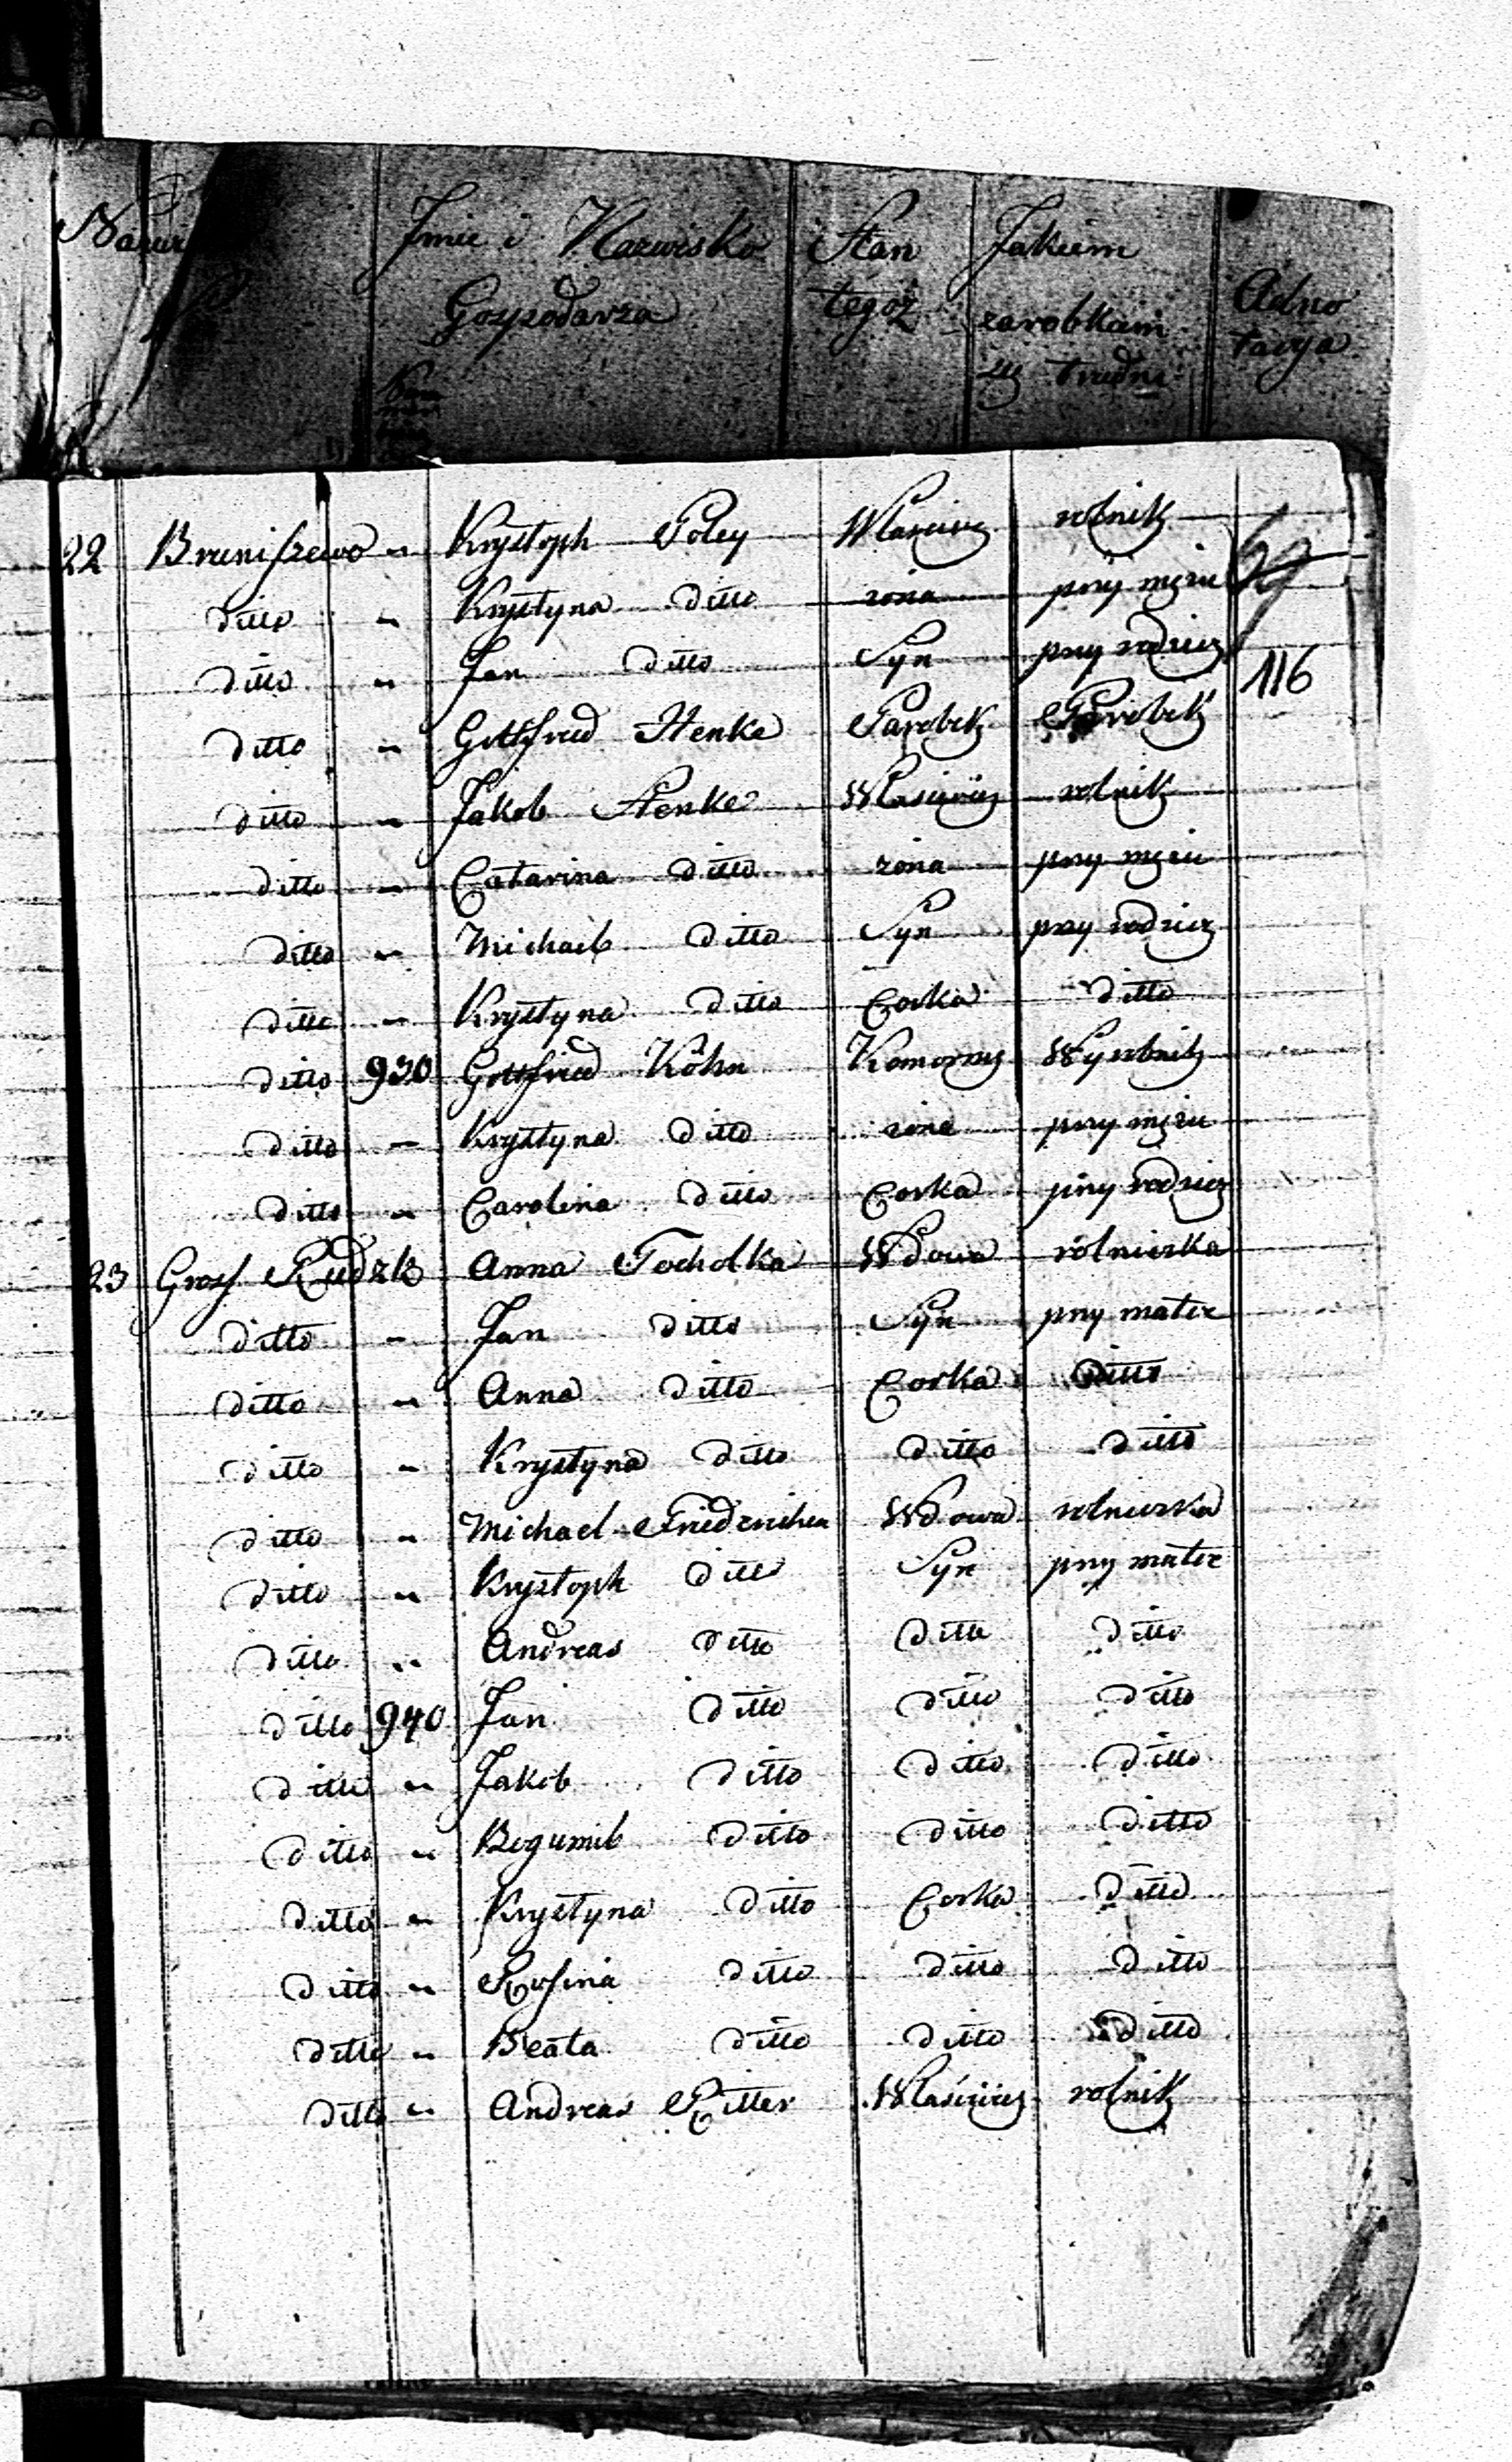 Imie i Nazwisko Gospodarza Stan tegoż Jakiem zarobkiem się trudni Adnotacya
22 Bruniszewo " Krystoph Poley Własciciel rolnik
ditto " Krystyna ditto zona przy mężu
ditto " Jan ditto Syn przy rodzicz
116
ditto " Gottfried Henke Parobek Parobek
ditto " Jakob Henke Właściciel rolnik
ditto " Catarina ditto zona przy mężu
ditto " Michael ditto Syn przy rodzicz
ditto " Krystyna ditto Corka ditto
ditto 930 Gottfried Köhn Komornik Wyrobnik
ditto " Krystyna ditto zona przy mężu
ditto " Carolina ditto Corka przy rodzicz
23 Gross Rudzk Anna Tocholka Wdowa rolniczka
ditto " Jan ditto Syn przy matce
ditto " Anna ditto Corka ditto
ditto " Krystyna ditto ditto ditto
ditto " Michael Friedrichen Wdowa rolniczka
ditto " Krystoph ditto Syn przy matce
ditto " Andreas ditto ditto ditto
ditto 940 Jan ditto ditto ditto
ditto " Jakob ditto ditto ditto
ditto " Bogumil ditto ditto ditto
ditto " Krystyna ditto Corka ditto
ditto " Rosina ditto ditto ditto
ditto " Beata ditto ditto ditto
ditto " Andreas Ritter Właściciel rolnik